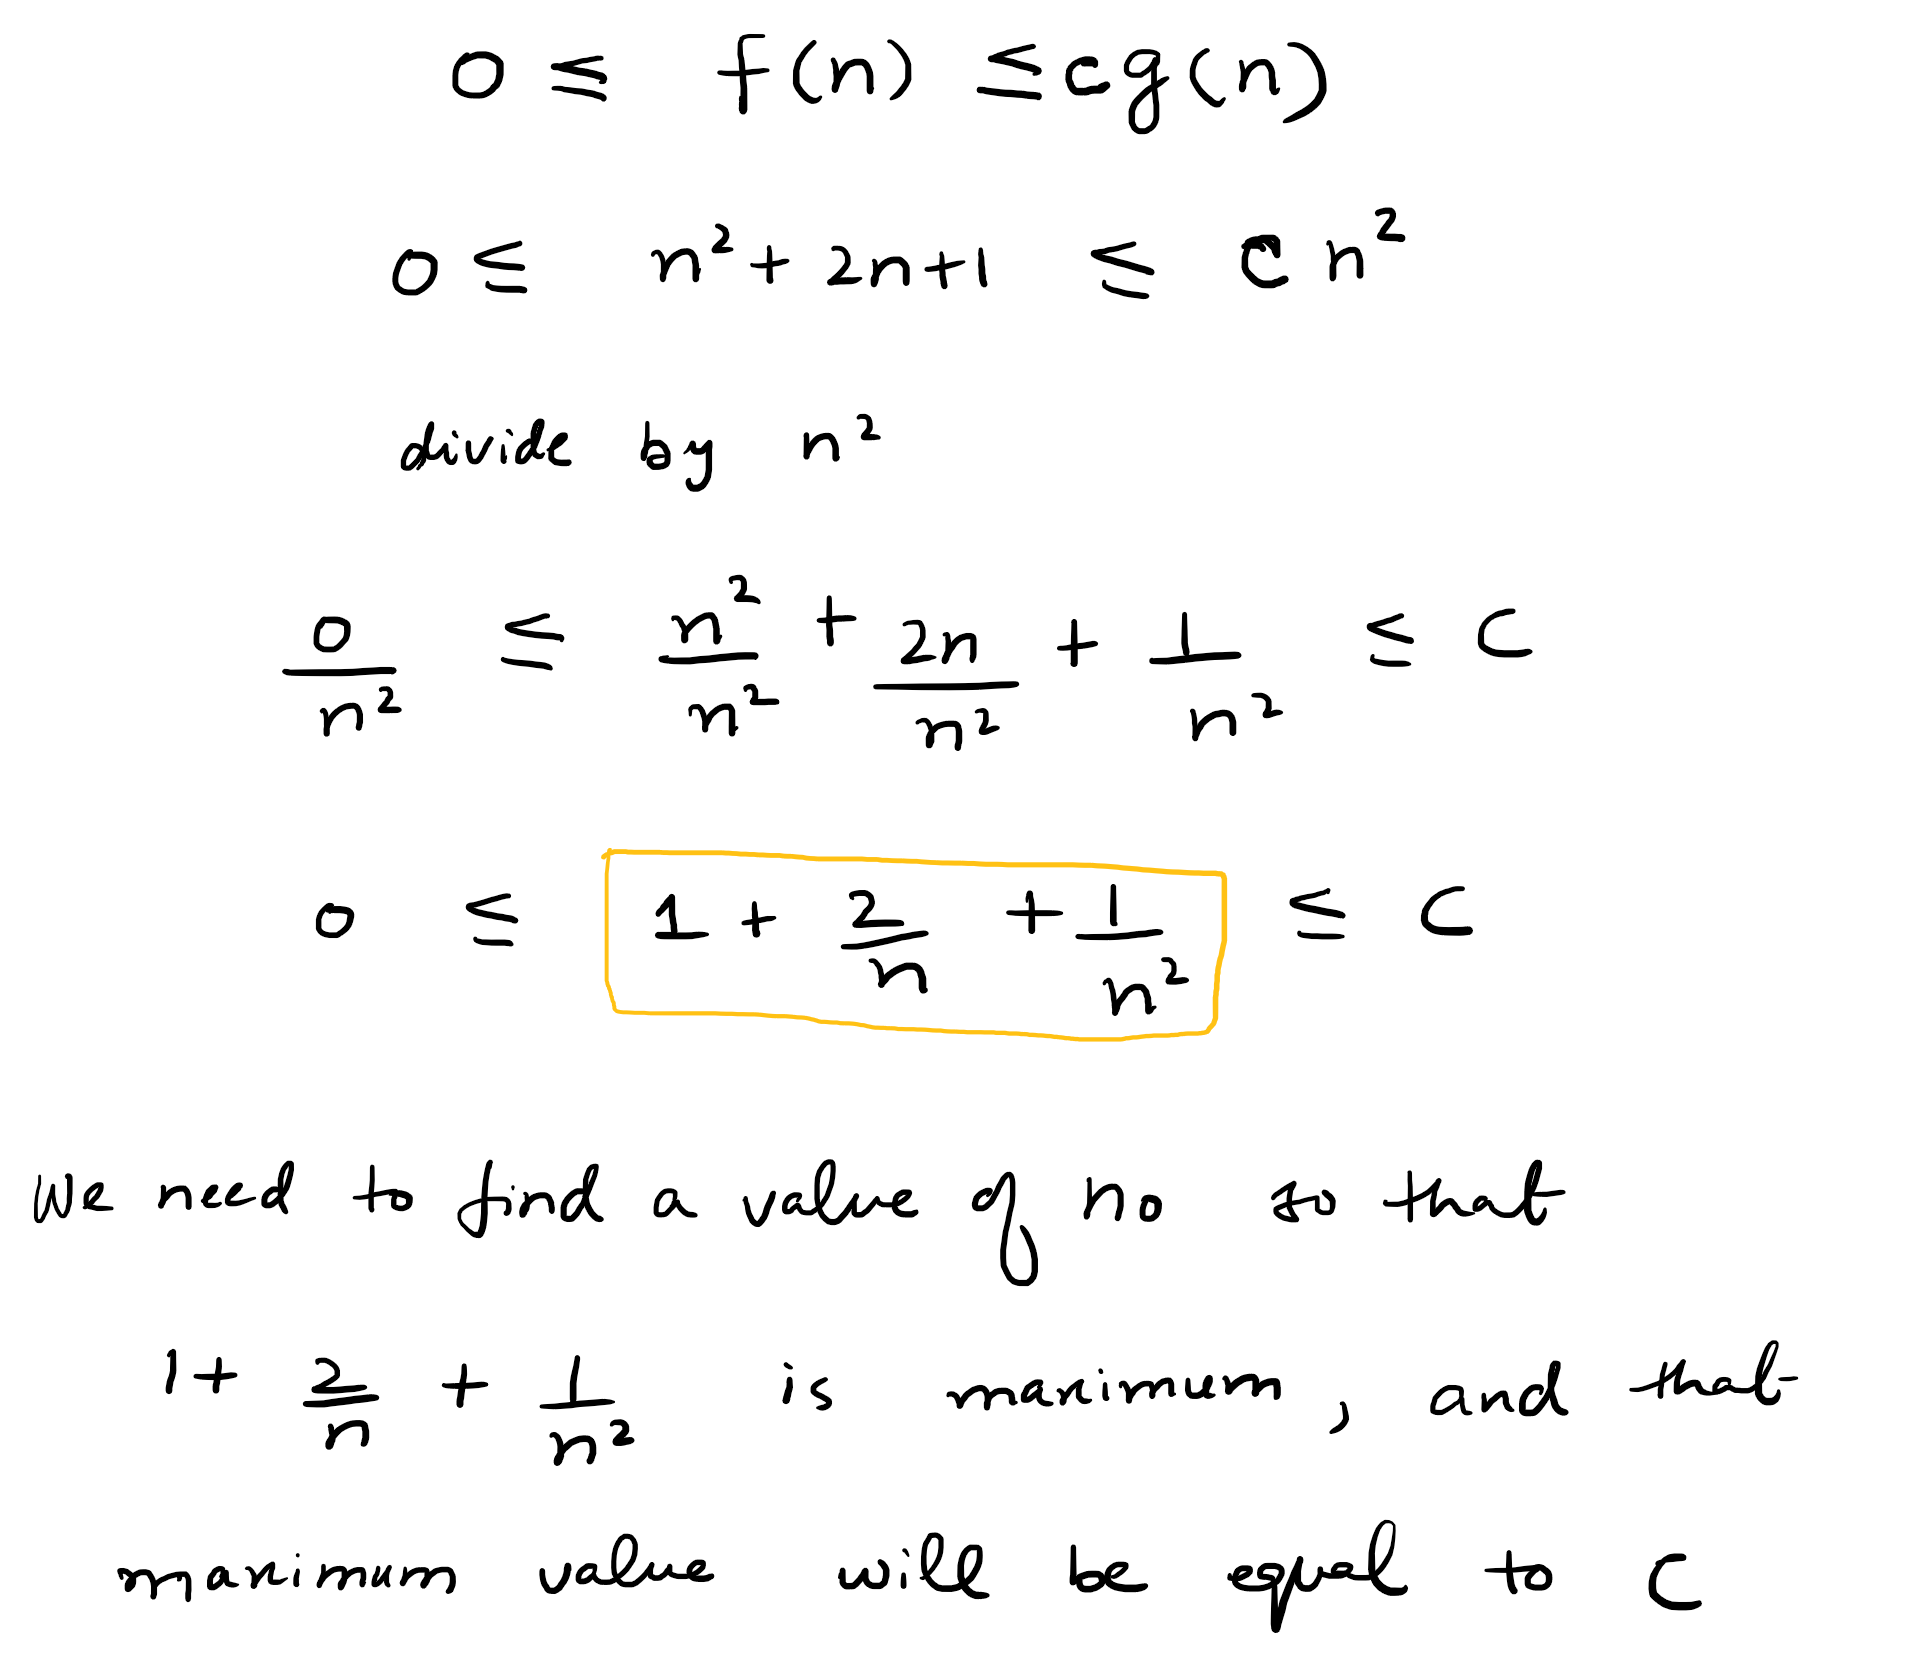 0 ≤ f(n) ≤ cg(n)
0 ≤ n² + 2n+1 ≤ c n²
divide by n²
0/n² ≤ n²/n² + 2n/n² + 1/n² ≤ C
0 ≤ 1 + 2/n + 1/n² ≤ C
We need to find a value of n₀ so that
1+ 2/n + 1/n² is maximum, and that
maximum value will be equal to C